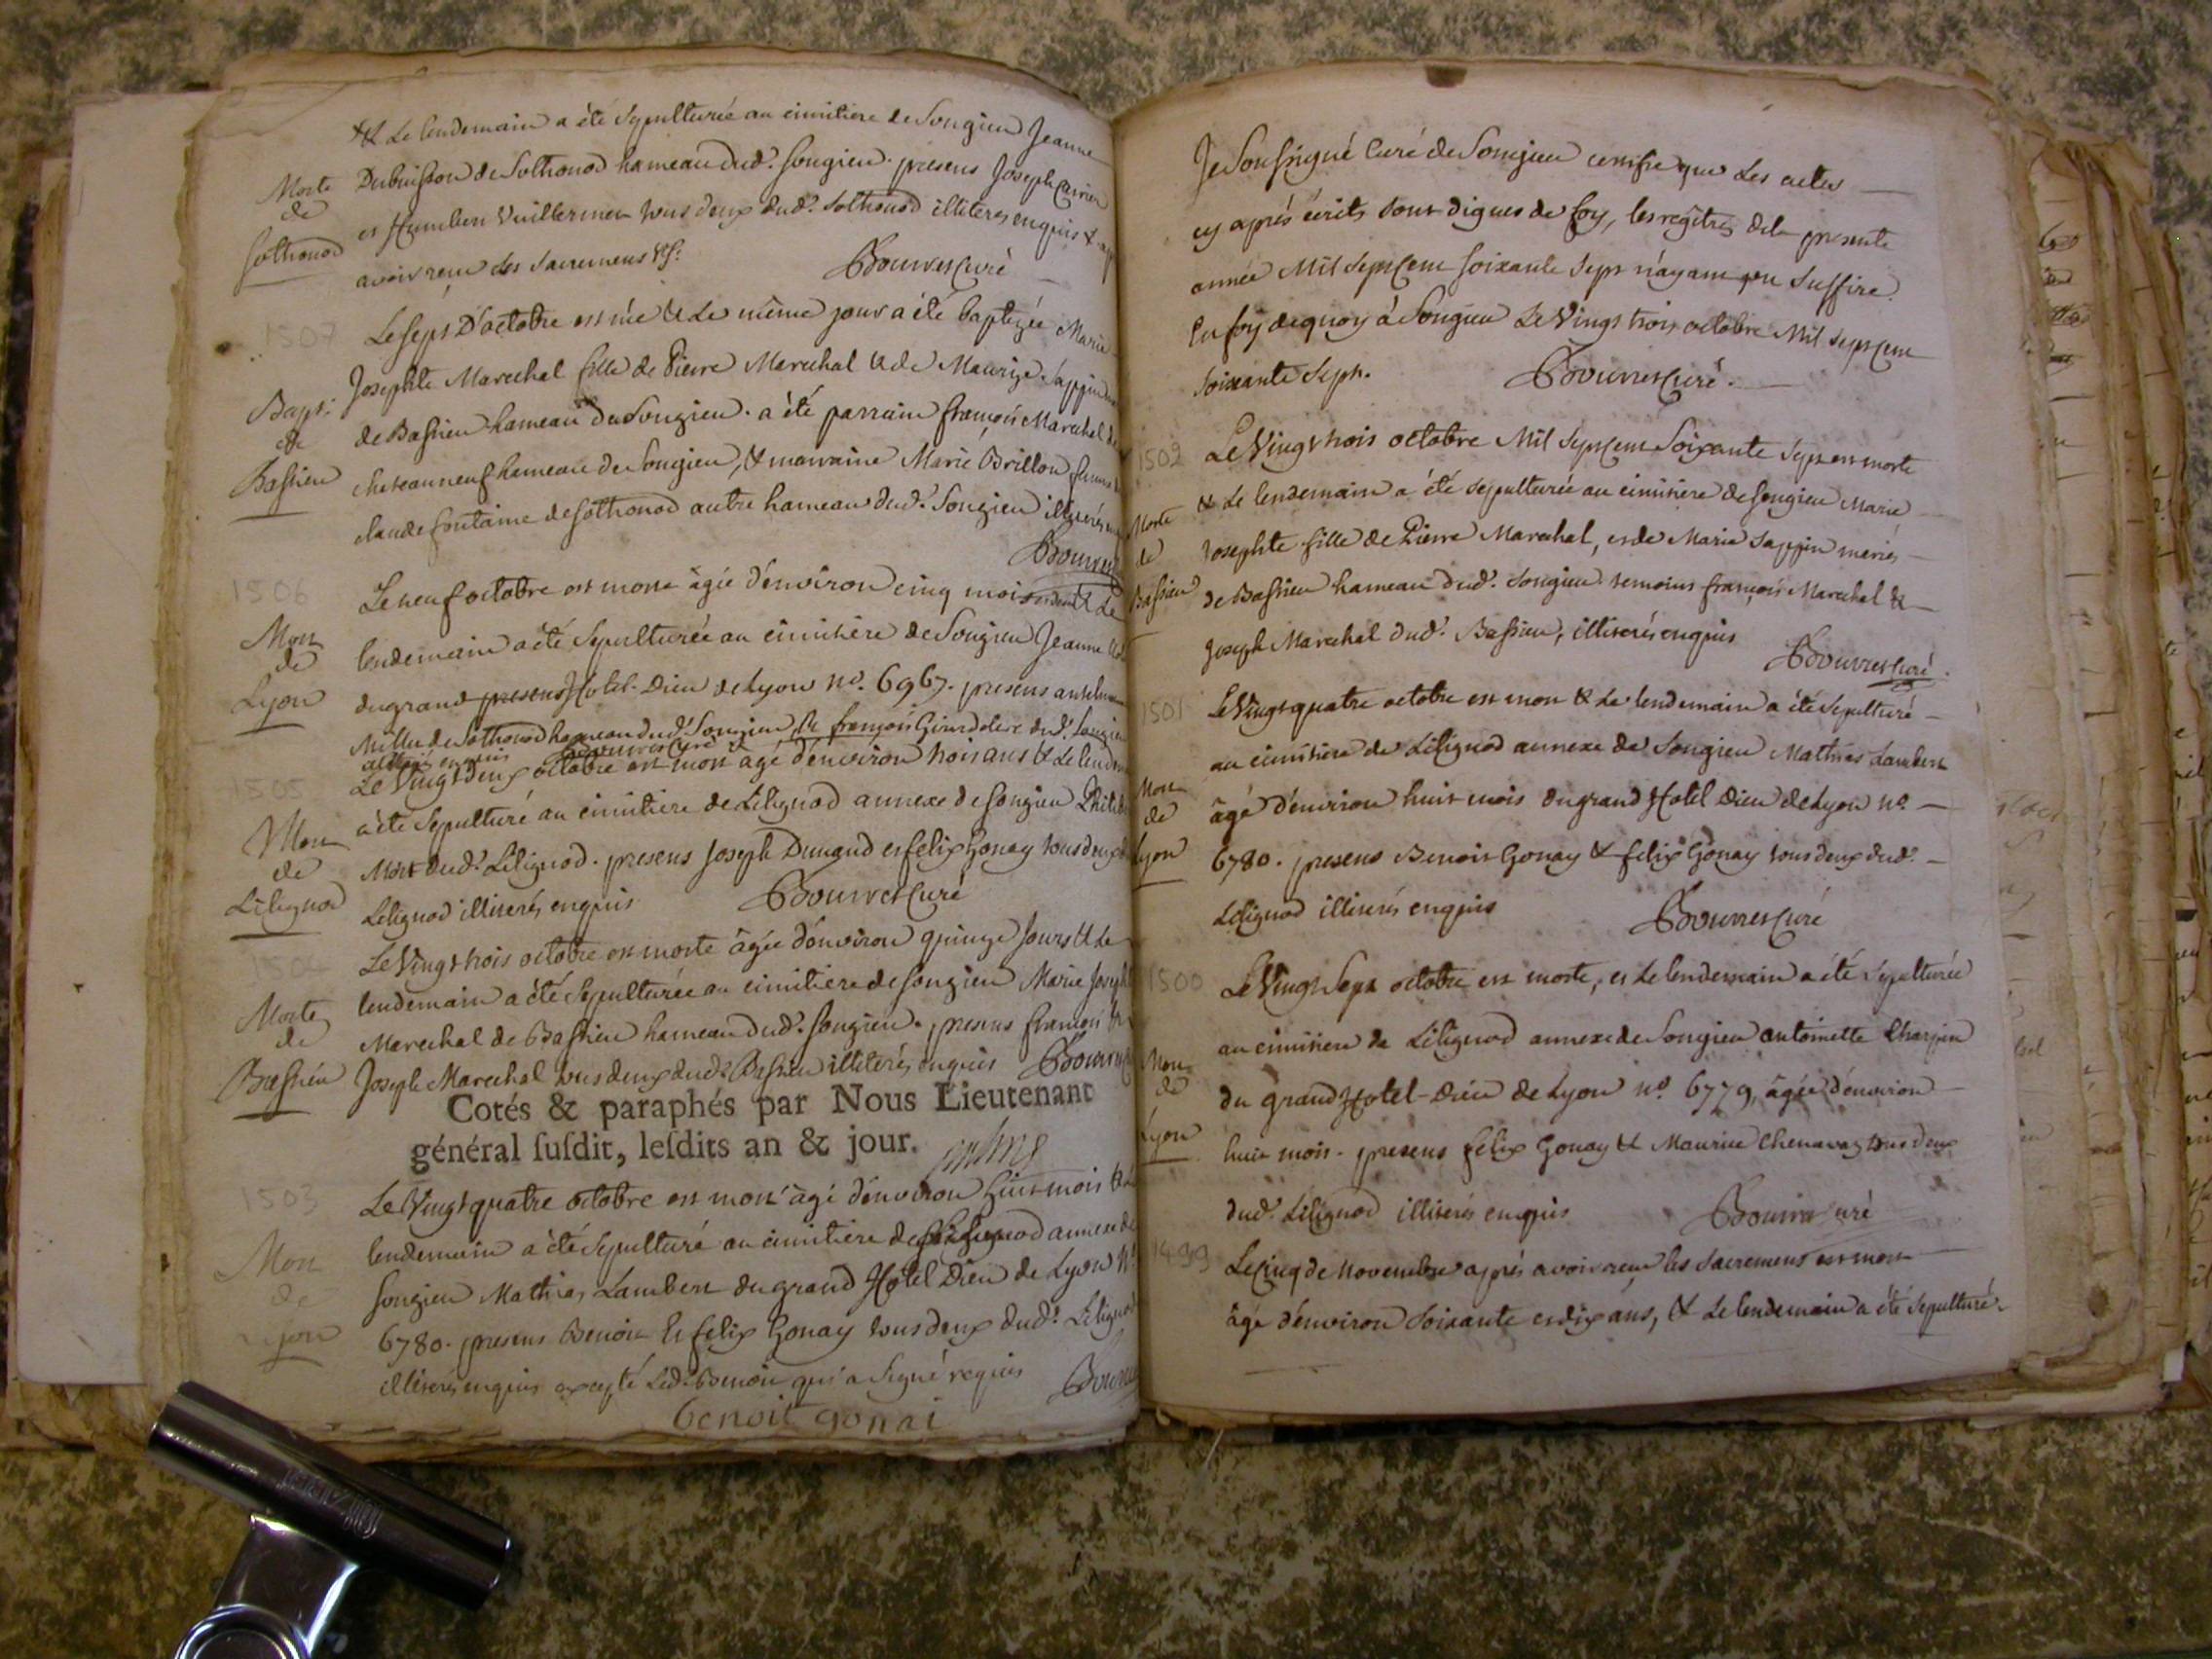 & Le lendemain a été Sepulturée au cimitiere de Songieu Jeanne
Morte
de
Sothonod
Dubuisson de Sothonod hameau dud. Songieu. presens Joseph Carrier
et Humbert Vuillermet tous deux dud. Sothonod illiterés enquis &
avoir reçu les Sacremens
Bouvret Curé
1507
Bapt.
de
Bassieu
Le Sept D'octobre est née & Le même jour a été baptizée Marie
Josephte Marechal fille de Pierre Marechal & de Maurize Sappin
de Bassieu hameau de Songieu. a été parrain françois Marechal de
chateauneuf hameau de Songieu, & marraine Marie Brillon femme
claude fontaine de Sothonod autre hameau dud. Songieu illiterés
Bouvret
1506
Mort
de
Lyon
Le neuf octobre est morte âgée d'environ cinq mois & Le
lendemain a été Sepulturée au cimitière de Songieu Jeanne
du grand presens Hotel-Dieu de Lyon no. 6967. presens anthelme
Millet de Sothonod hameau dud. Songieu, & françois Girard clerc dud. Songieu
illiterés enquis Bouvret Curé
1505
Mort
de
Lilignod
Le Vingt deux octobre est mort âgé d'environ trois ans & Le lendemain
a été Sepulturé au cimitiere de Lilignod annexe de Songieu
Mort dud. Lilignod. presens Joseph Dunand et felix Gonay tous deux
Lilignod illiterés enquis
Bouvret Curé
1504
Morte
de
Bassieu
Le Vingt trois octobre est morte âgée d'environ quinze Jours & Le
lendemain a été Sepulturée au cimitiere de Songieu Marie Joseph
Marechal de Bassieu hameau dud. Songieu. presens françois &
Joseph Marechal tous deux dud. Bassieu illiterés enquis Bouvret
Cotés & paraphés par Nous Lieutenant
général ſuſdit, leſdits an & jour.
1503
Mort
de
Lyon
Le Vingt quatre octobre est mort âgé d'environ huit mois &
lendemain a été Sepulturé au cimitière de Lilignod annexe de
Songieu Mathias Lambert du grand Hotel Dieu de Lyon No
6780. presens Benoit & felix Gonay tous deux dud. Lilignod
illiterés enquis excepté Led. Benoit qui a Signé requis
Bouvret
benoit gonai
Je Soussigné Curé de Songieu certifie que Les actes
cy après écrits Sont dignes de foy, les regîtres de la presente
année Mil Sept Cent Soixante Sept n'ayant pu Suffire.
En foy dequoy à Songieu Le Vingt trois octobre Mil Sept Cent
Soixante Sept.
Bouvret Curé.
1502
Morte
de
Bassieu
Le Vingt trois octobre Mil Sept Cent Soixante Sept est morte
& Le lendemain a été Sepulturée au cimitière de Songieu Marie
Josephte fille de Pierre Marechal, et de Marie Sappin mariés
de Bassieu hameau dud. Songieu. temoins françois Marechal &
Joseph Marechal dud. Bassieu, illiterés enquis
Bouvret Curé.
1501
Mort
de
Lyon
Le Vingt quatre octobre est mort & Le lendemain a été Sepulturé
au cimitière de Lilignod annexe de Songieu Mathias Lambert
âgé d'environ huit mois du grand Hotel Dieu de Lyon no.
6780. presens Benoit Gonay & felix Gonay tous deux dud.
Lilignod illiterés enquis
Bouvret Curé
1500
Mort
de
Lyon
Le Vingt Sept octobre est morte, et Le lendemain a été Sepulturée
au cimitiere de Lilignod annexe de Songieu antoinette Charpin
du grand Hotel-Dieu de Lyon no. 6779, âgée d'environ
huit mois. presens felix Gonay & Maurice Chenavaz tous deux
dud. Lilignod illiterés enquis
Bouvret Curé
1499
Le Cinq de Novembre après avoir reçu les Sacremens est mort
âgé d'environ Soixante et dix ans, & Le lendemain a été Sepulturé